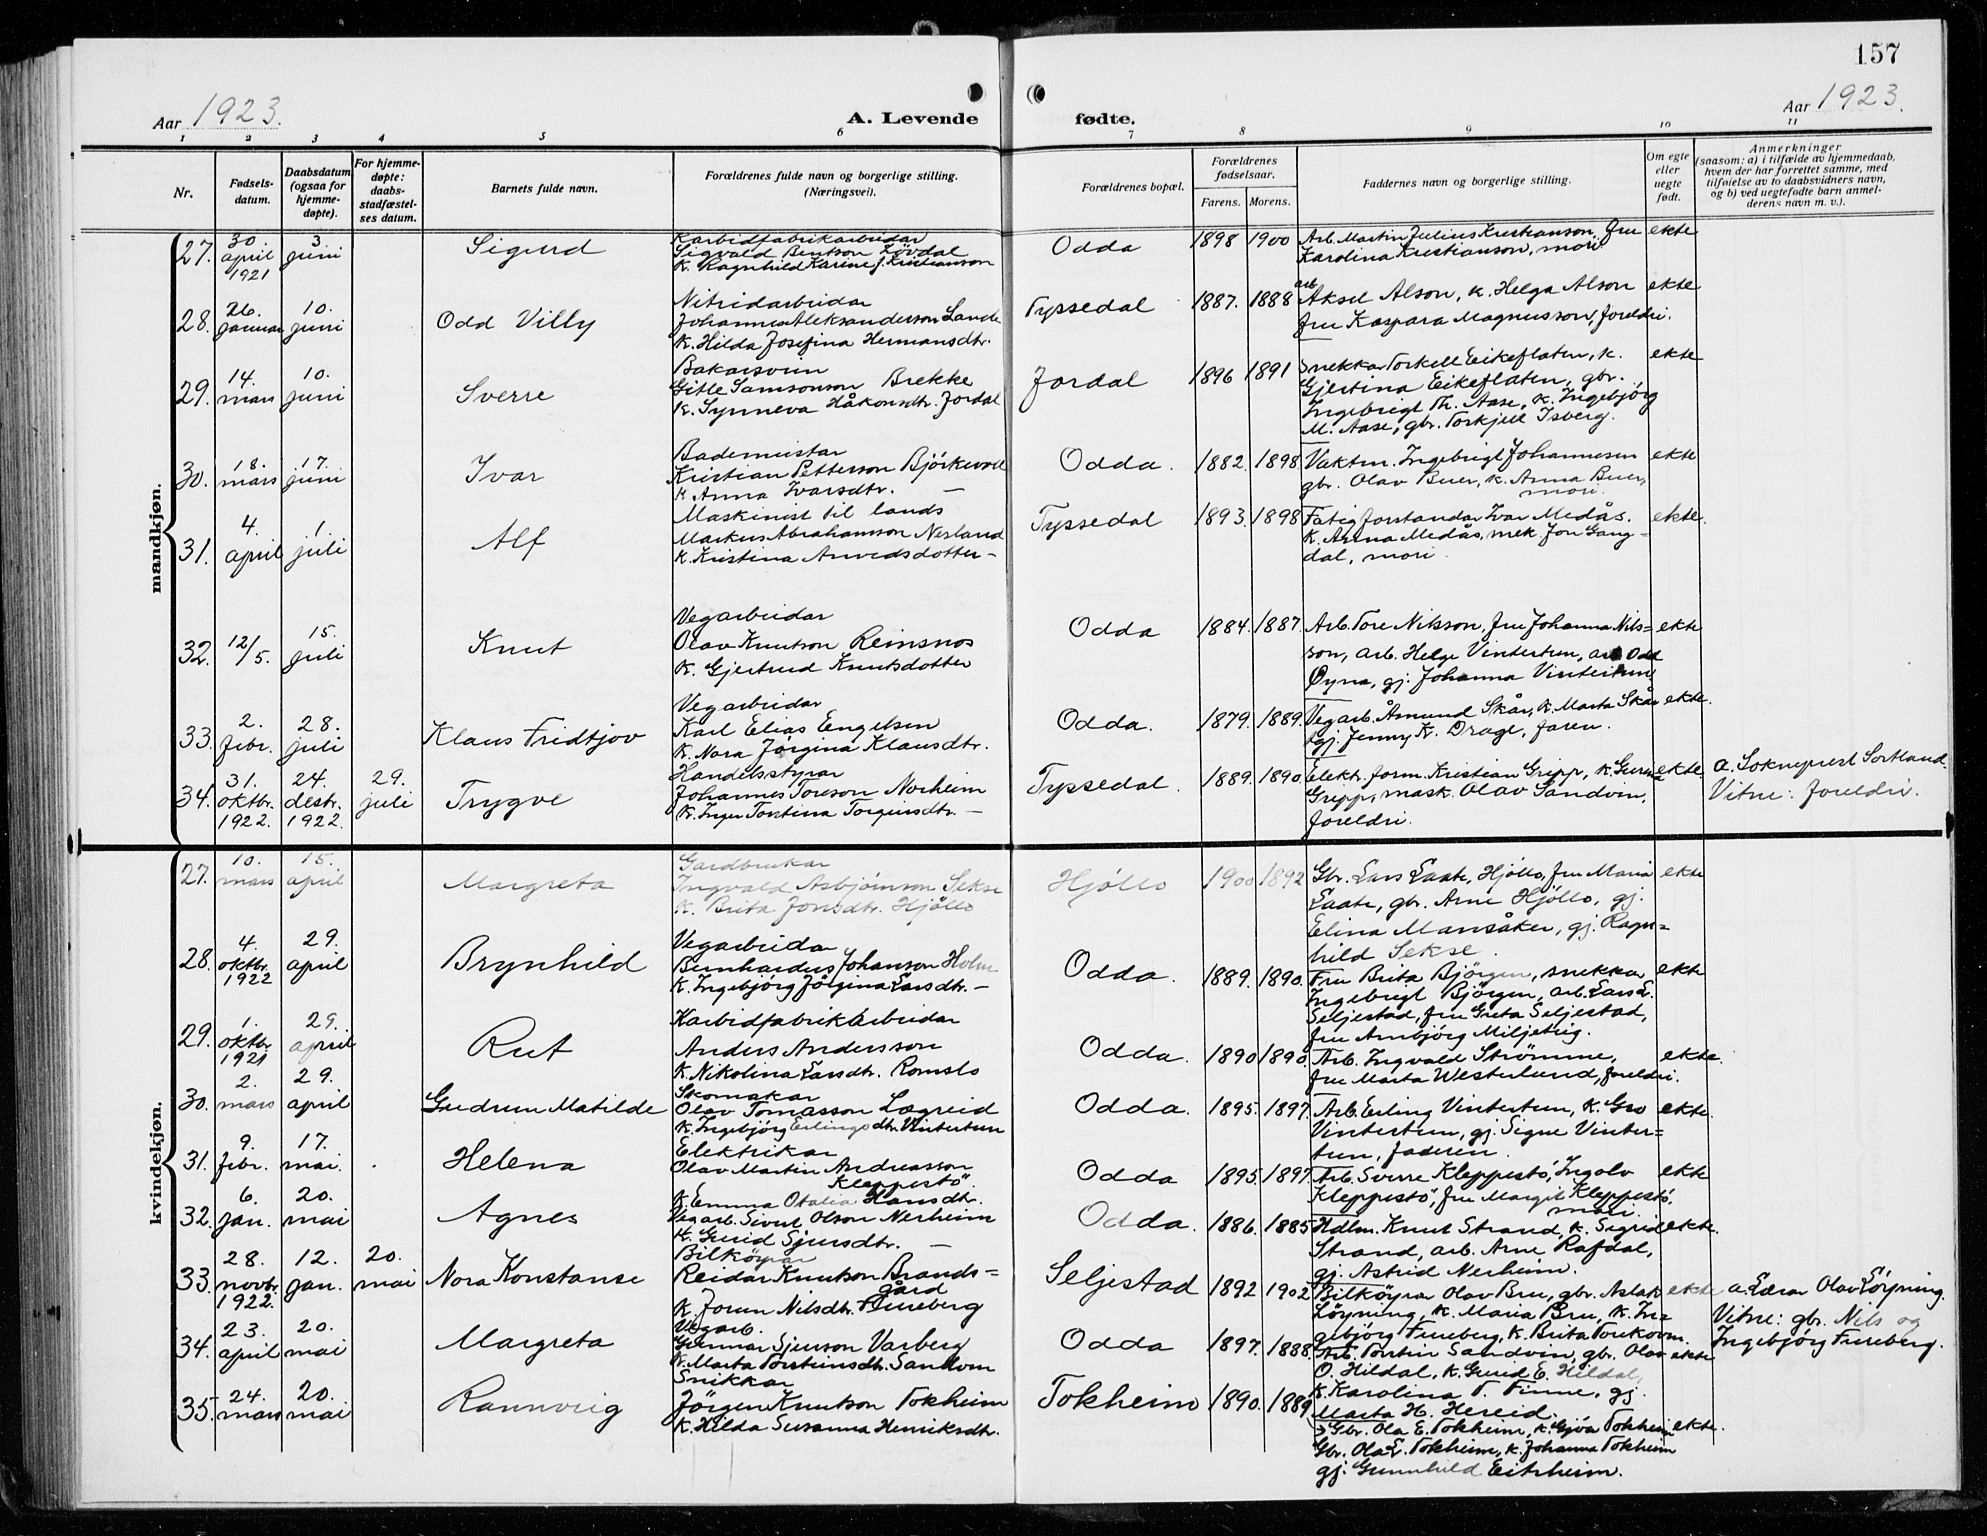 157
Aar 1923.
A. Levende fødte.
Aar 1923.
1 2 3 4 5 6 7 8 9 10 11
Nr.
Fødsels-
datum.
Daabsdatum
(ogsaa for
hjemme-
døpte).
For hjemme-
døpte:
daabs-
stadfæstel-
ses datum.
Barnets fulde navn.
Forældrenes fulde navn og borgerlige stilling.
(Næringsvei).
Forældrenes bopæl.
Forældrenes
fødselsaar.
Farens. Morens.
Faddernes navn og borgerlige stilling.
Om egte
eller
uegte
født.
Anmerkninger
(saasom: a) i tilfælde av hjemmedaab,
hvem der har forrettet samme, med
tilføielse av to daabsvidners navn,
og b) ved uegtefødte barn anmel-
derens navn m. v.).
mandkjøn.
27. 30 april 1921 3 juni Sigurd
Karbidfabrikarbeidar
Sigvald Bentson Lövdal
K. Ragnhild Karine f. Kristianson
Odda 1898 1900
Arb. Martin Julius Kristianson, fru
Karolina Kristianson, mori
ekte
28. 26. januar 10. juni Odd Villy
Nitridarbeidar
Johannes Aleksanderson Lande
K. Hilda Josefina Hermansdtr.
Tyssedal 1887. 1888
arb. Aksel Alson, k. Helga Alson
fru Kaspara Magnusson, foreldri.
ekte
29. 14. mars 10. juni Sverre
Bakarsvein
Gitle Samsonson Brekke
K. Synneva Håkonsdtr. Jordal
Jordal 1896 1891
Snekkar Torkell Eikeflaten, k.
Gjertina Eikeflaten, gbr.
Ingebrigt Th. Aase, k. Ingebjørg
M. Aase, gbr. Torkjell Isberg.
ekte
30. 18. mars 17. juni Ivar
Bademeistar
Kristian Petterson Björkevoll
K Anna Ivarsdtr. —
Odda. 1882. 1898.
Vaktm. Ingebrigt Johannesen
gbr. Olav Buer, k. Anna Buer,
mori.
ekte
31. 4. april 1. juli Alf
Maskinist til lands
Markus Abrahamson Nerland
K. Kristina Arnedsdotter —
Tyssedal 1893. 1898
Fatigforstandar Ivar Medås.
K. Anna Medås, mek. Jon Gang-
dal, mori.
ekte.
32. 12/5. 15. juli Knut
Vegarbeidar
Olav Knutson Reinsnos
K. Gjertrud Knutsdotter
Odda 1884. 1887.
Arb. Tore Nilsson, fru Johanna Nils-
son, arb. Helge Vintertun, arb Odd
Øyna, gj. Johanna Vintertun
ekte
33. 2. febr. 28. juli Klaus Fridtjov
Vegarbeidar
Karl Elias Engelsen
K. Nora Jørgina Klausdtr.
Odda. 1879. 1889.
Vegarb. Åmund Skår, k. Marta Skår
gj. Jenny K. Drage, faren.
ekte.
34. 31. oktbr. 1922. 24. destr. 1922. 29. juli Trygve
Handelsstyrar
Johannes Toreson Norheim
K. Inger Torstina Torgeirsdtr. —
Tyssedal. 1889. 1890.
Elektr. form. Kristian Gripp, k. Gurina
Gripp, mask. Olav Sandven,
foreldri.
ekte
a. Sokneprest Sortland.
Vitne: foreldri.
kvindekjøn.
27. 10. mars 15. april Margreta
Gardbrukar
Ingvald Asbjørnson Sekse
K. Brita Jonsdtr. Hjøllo
Hjøllo 1900 1892
Gbr. Lars Laate, Hjöllo, fru Maria
Laate, gbr. Arne Hjöllo, gj.
Elina Mansåker, gj. Ragn-
hild Sekse.
ekte
28. 4. oktbr. 1922 29. april Brynhild
Vegarbeidar
Bernhardus Johanson Holm
K. Ingebjörg Jörgina Larsdtr. —
Odda. 1889. 1890.
Fru Brita Bjørgen, snekkar
Ingebrigt Bjørgen, arb. Lars L.
Seljestad, fru Greta Seljestad,
fru Arnbjörg Miljeteig.
ekte
29. 1. oktbr 1921 29. april Rut
Karbidfabrikarbeidar
Anders Andersson
K. Nikolina Larsdtr. Romslo
Odda. 1890 1890.
Arb. Ingvald Strömme,
fru Marta Westerlund, foreldri.
ekte.
30. 2. mars 29. april Gudrun Matilde
Skomakar
Olav Tomasson Lægreid
K. Ingebjörg Erlingsdtr. Vintertun
Odda. 1895. 1897.
Arb. Erling Vintertun, k. Gro
Vintertun, gj. Signe Vinter-
tun, faderen.
ekte.
31. 9. febr. 17. mai. Helena
Elektrikar
Olav Martin Andreasson
Kleppestö
K. Emma Otalia Hansdtr.
Odda 1895. 1897
Arb. Sverre Kleppestö, Ingolv
Kleppestö, fru Margit Kleppestö,
mori.
ekte
32. 6. jan. 20. mai Agnes
Vegarb. Sivert Olson Nerheim
K. Gurid Sjursdtr. —
Odda. 1886. 1885
Hdlm. Knut Strand, k. Sigrid
Strand, arb. Arne Rafdal,
gj. Astrid Nerheim.
ekte.
33. 28. novbr. 1922. 12. jan. 20. mai Nora Konstanse
Bilköyrar
Reidar Knutson Brands-
gård
K. Jorun Nilsdtr. Fureberg
Seljestad 1892 1902
Bilköyrar Olav Bru, gbr. Aslak
Löyning, k. Maria Bru, k. In-
gebjörg Fureberg, k. Brita
ekte
a. Lærar Olav Löyning.
Vitne: gbr. Nils og
Ingebjörg Fureberg.
34. 23. april 20. mai Margreta
Vegarb.
Gunnar Sjurson Varberg
K. Marta Torsteinsdtr. Sandven
Odda 1897. 1888.
Arb. Torstein Sandvin, gbr. Olav
O. Hildal, k. Gurid E. Hildal,
K. Karolina T. Finne, gj.
Marta H. Hereid.
ekte
35. 24. mars 20. mai Rannveig
Snikkar
Jörgen Knutson Tokheim
K. Hilda Susanna Henriksdtr.
Tokheim 1890. 1889
Gbr. Ola E. Tokheim, k. Gjöa Tokheim
Gbr. Ola L. Tokheim, k. Johanna Tokheim
gj. Gunnhild Eitrheim.
ekte.